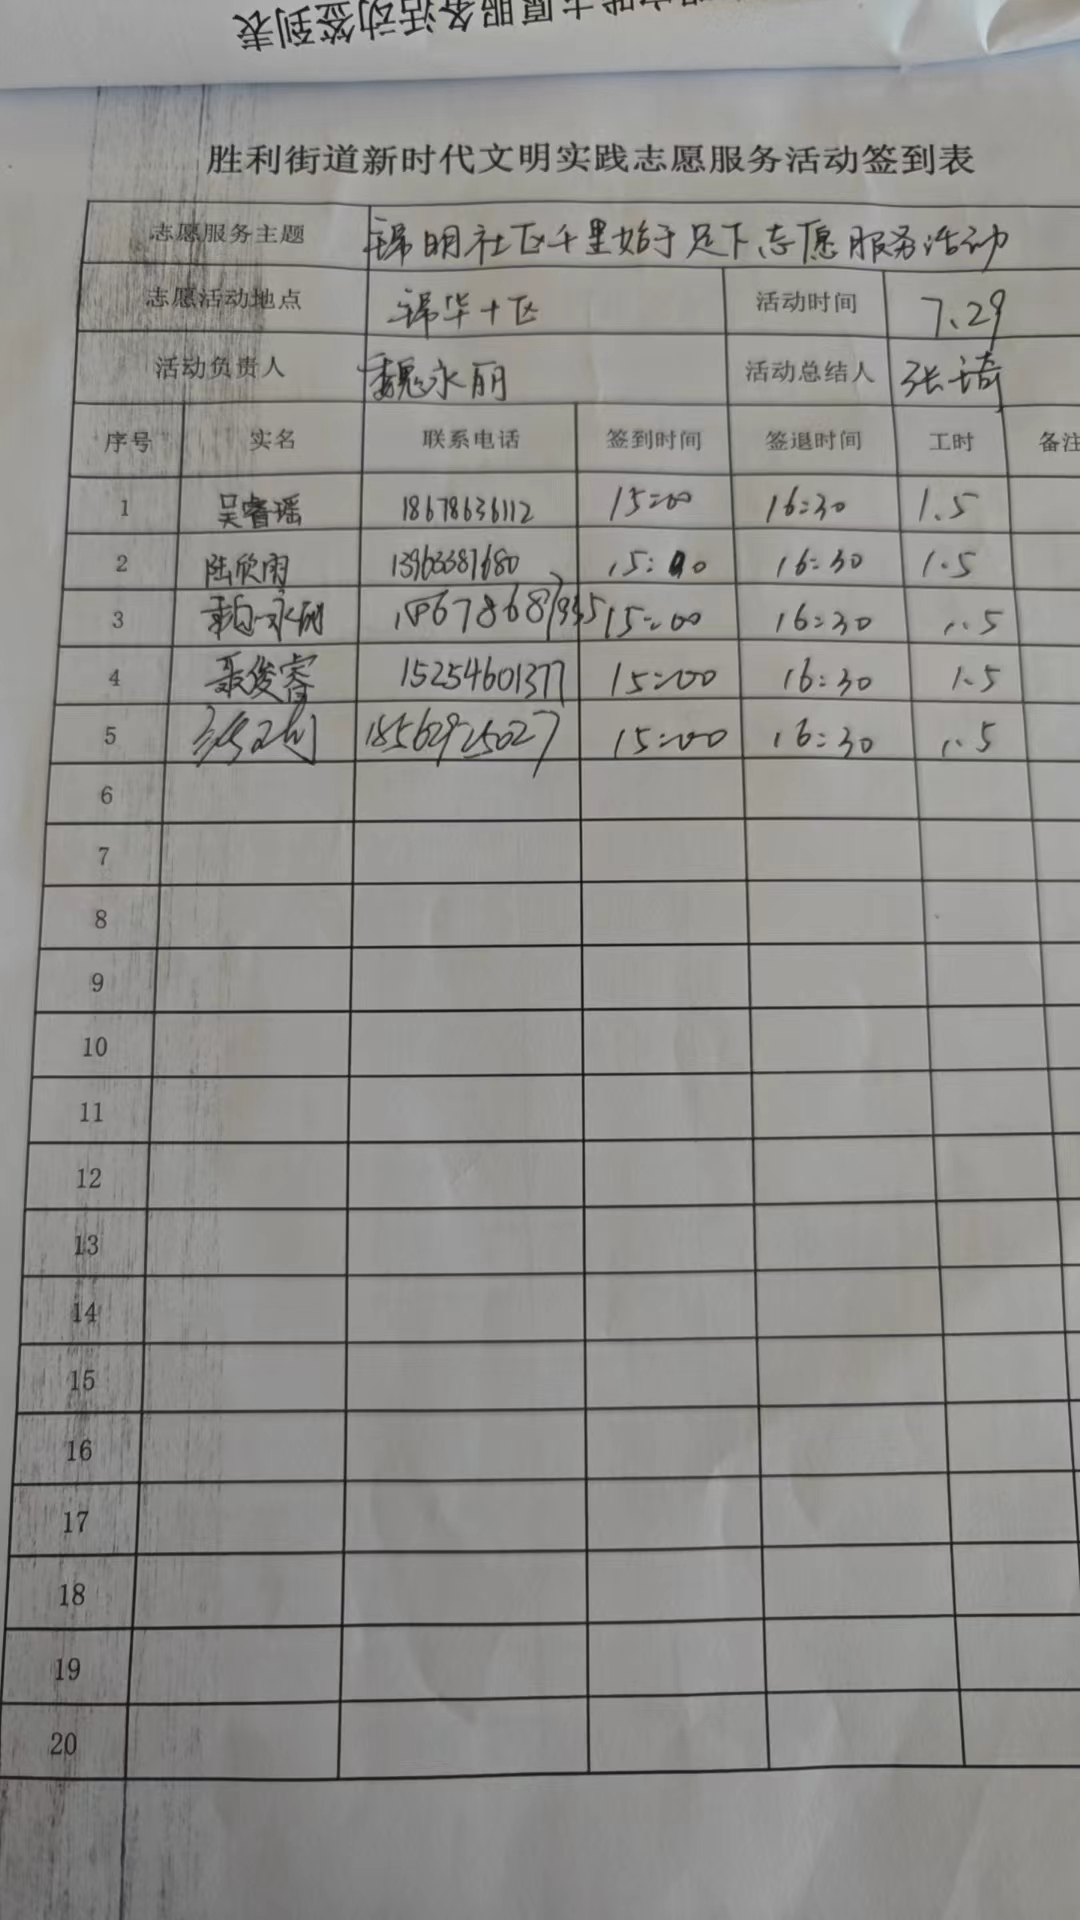 愿服务活动签到表
胜利街道新时代文明实践志愿服务活动签到表
志愿服务主题 锦明社区千里始于足下志愿服务活动
志愿活动地点 锦华十区 活动时间 7.29
活动负责人 魏永丽 活动总结人 张琦
序号 实名 联系电话 签到时间 签退时间 工时 备注
1 吴睿瑶 18678636112 15:00 16:30 1.5
2 陆欣雨 13963387680 15:00 16:30 1.5
3 15:00 16:30 1.5
4 聂俊睿 15254601377 15:00 16:30 1.5
5 18562925027 15:00 16:30 1.5
6
7
8
9
10
11
12
13
14
15
16
17
18
19
20